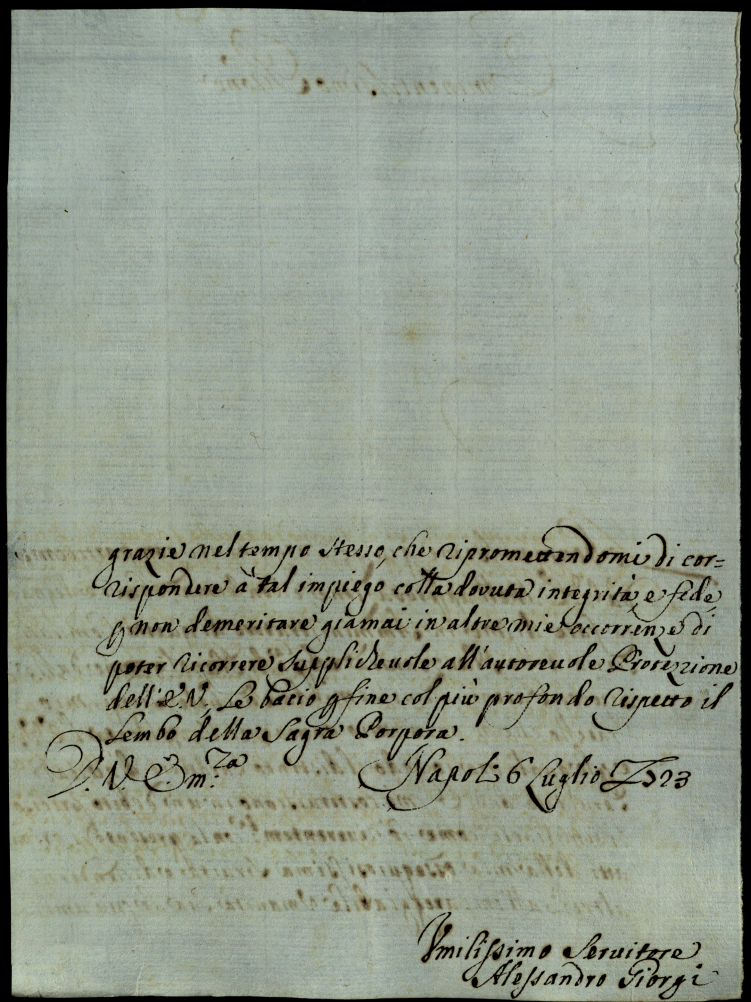 grazie nel tempo stesso, che ripromettendomi di cor=
rispondere à tal impiego colla dovuta integrità, e fede,
p non demeritare giamai in altre mie occorrenze di
poter ricorrere supplicheuole all'autoreuole Protezzione
dell'E.V. Le bacio p fine col più profondo rispetto il
Lembo della Sagra Porpora.
D. V. Em.za Napoli 6 Luglio 1723
Vmilissimo Seruitore
Alessandro Giorgi